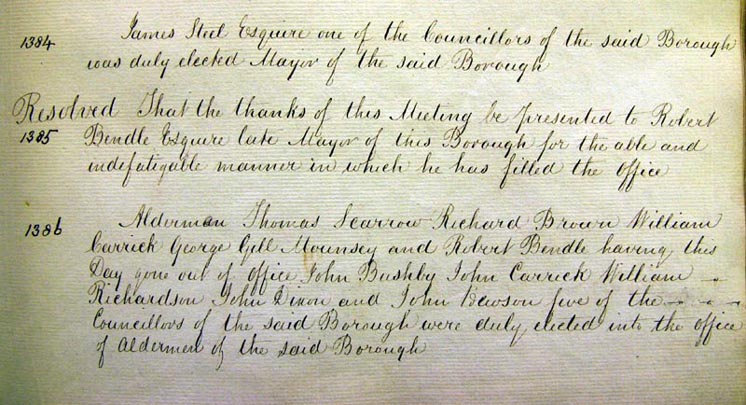 1384 James Steel Esquire one of the Councillors of the said Borough
was duly elected Mayor of the said Borough
Resolved That the thanks of this Meeting be presented to Robert
1385 Bendle Esquire late Mayor of this Borough for the able and
indefatigable manner in which he has filled the office
1386 Alderman Thomas Scarrow Richard Brown William
Carrick George Gill Mounsey and Robert Bendle having this
Day gone out of office John Bushby John Carrick William
Richardson John Dixon and John Dawson five of the
Councillors of the said Borough were duly elected into the office
of Aldermen of the said Borough